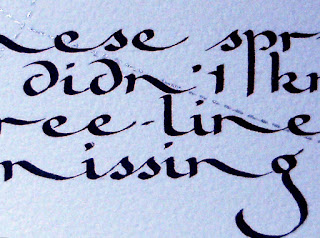 nese spr
didn't kn
ree-line
nissing